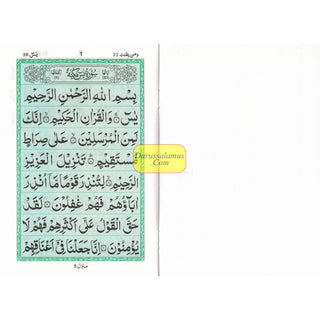 یٰسٓ 36
٦
ومن یقنت 22
سُوْرَةُ يٰسٓ مَكِّيَّةٌ
بِسْمِ اللّٰهِ الرَّحْمٰنِ الرَّحِيْمِ
يٰسٓ ۚ وَالْقُرْاٰنِ الْحَكِيْمِ ۙ اِنَّكَ
لَمِنَ الْمُرْسَلِيْنَ ۙ عَلٰى صِرَاطٍ
مُّسْتَقِيْمٍ ؕ تَنْزِيْلَ الْعَزِيْزِ
الرَّحِيْمِ ۙ لِتُنْذِرَ قَوْمًا مَّاۤ اُنْذِرَ
اٰبَآؤُهُمْ فَهُمْ غٰفِلُوْنَ ۞ لَقَدْ
حَقَّ الْقَوْلُ عَلٰۤى اَكْثَرِهِمْ فَهُمْ لَا
يُؤْمِنُوْنَ ۞ اِنَّا جَعَلْنَا فِيْۤ اَعْنَاقِهِمْ
منزل ٥
Darussalamus
.Com